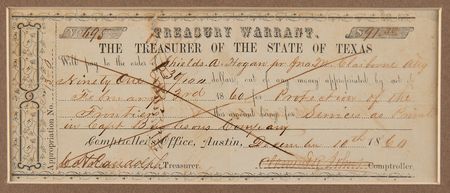 No 695 TREASURY WARRANT. $91.30
THE TREASURER OF THE STATE OF TEXAS
Will pay to the order of Shields A. Hogan pr Jno. W. Claiborne Atty
Ninety One 30/100 dollars, out of any money appropriated by act of
February 3rd 1860 for Protection of the
Frontier the amount being for Services as Private
in Capt Company
Comptroller's Office, Austin, December 10th 1860
C. H. Randolph Treasurer. Comptroller.
Appropriation No.